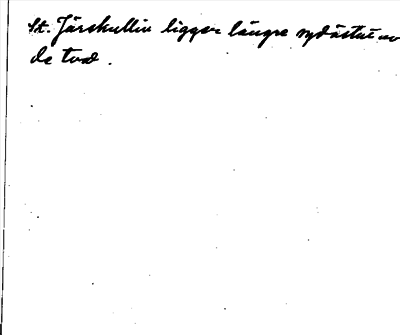 St. Järskullen ligger längre sydöstut av
de två.